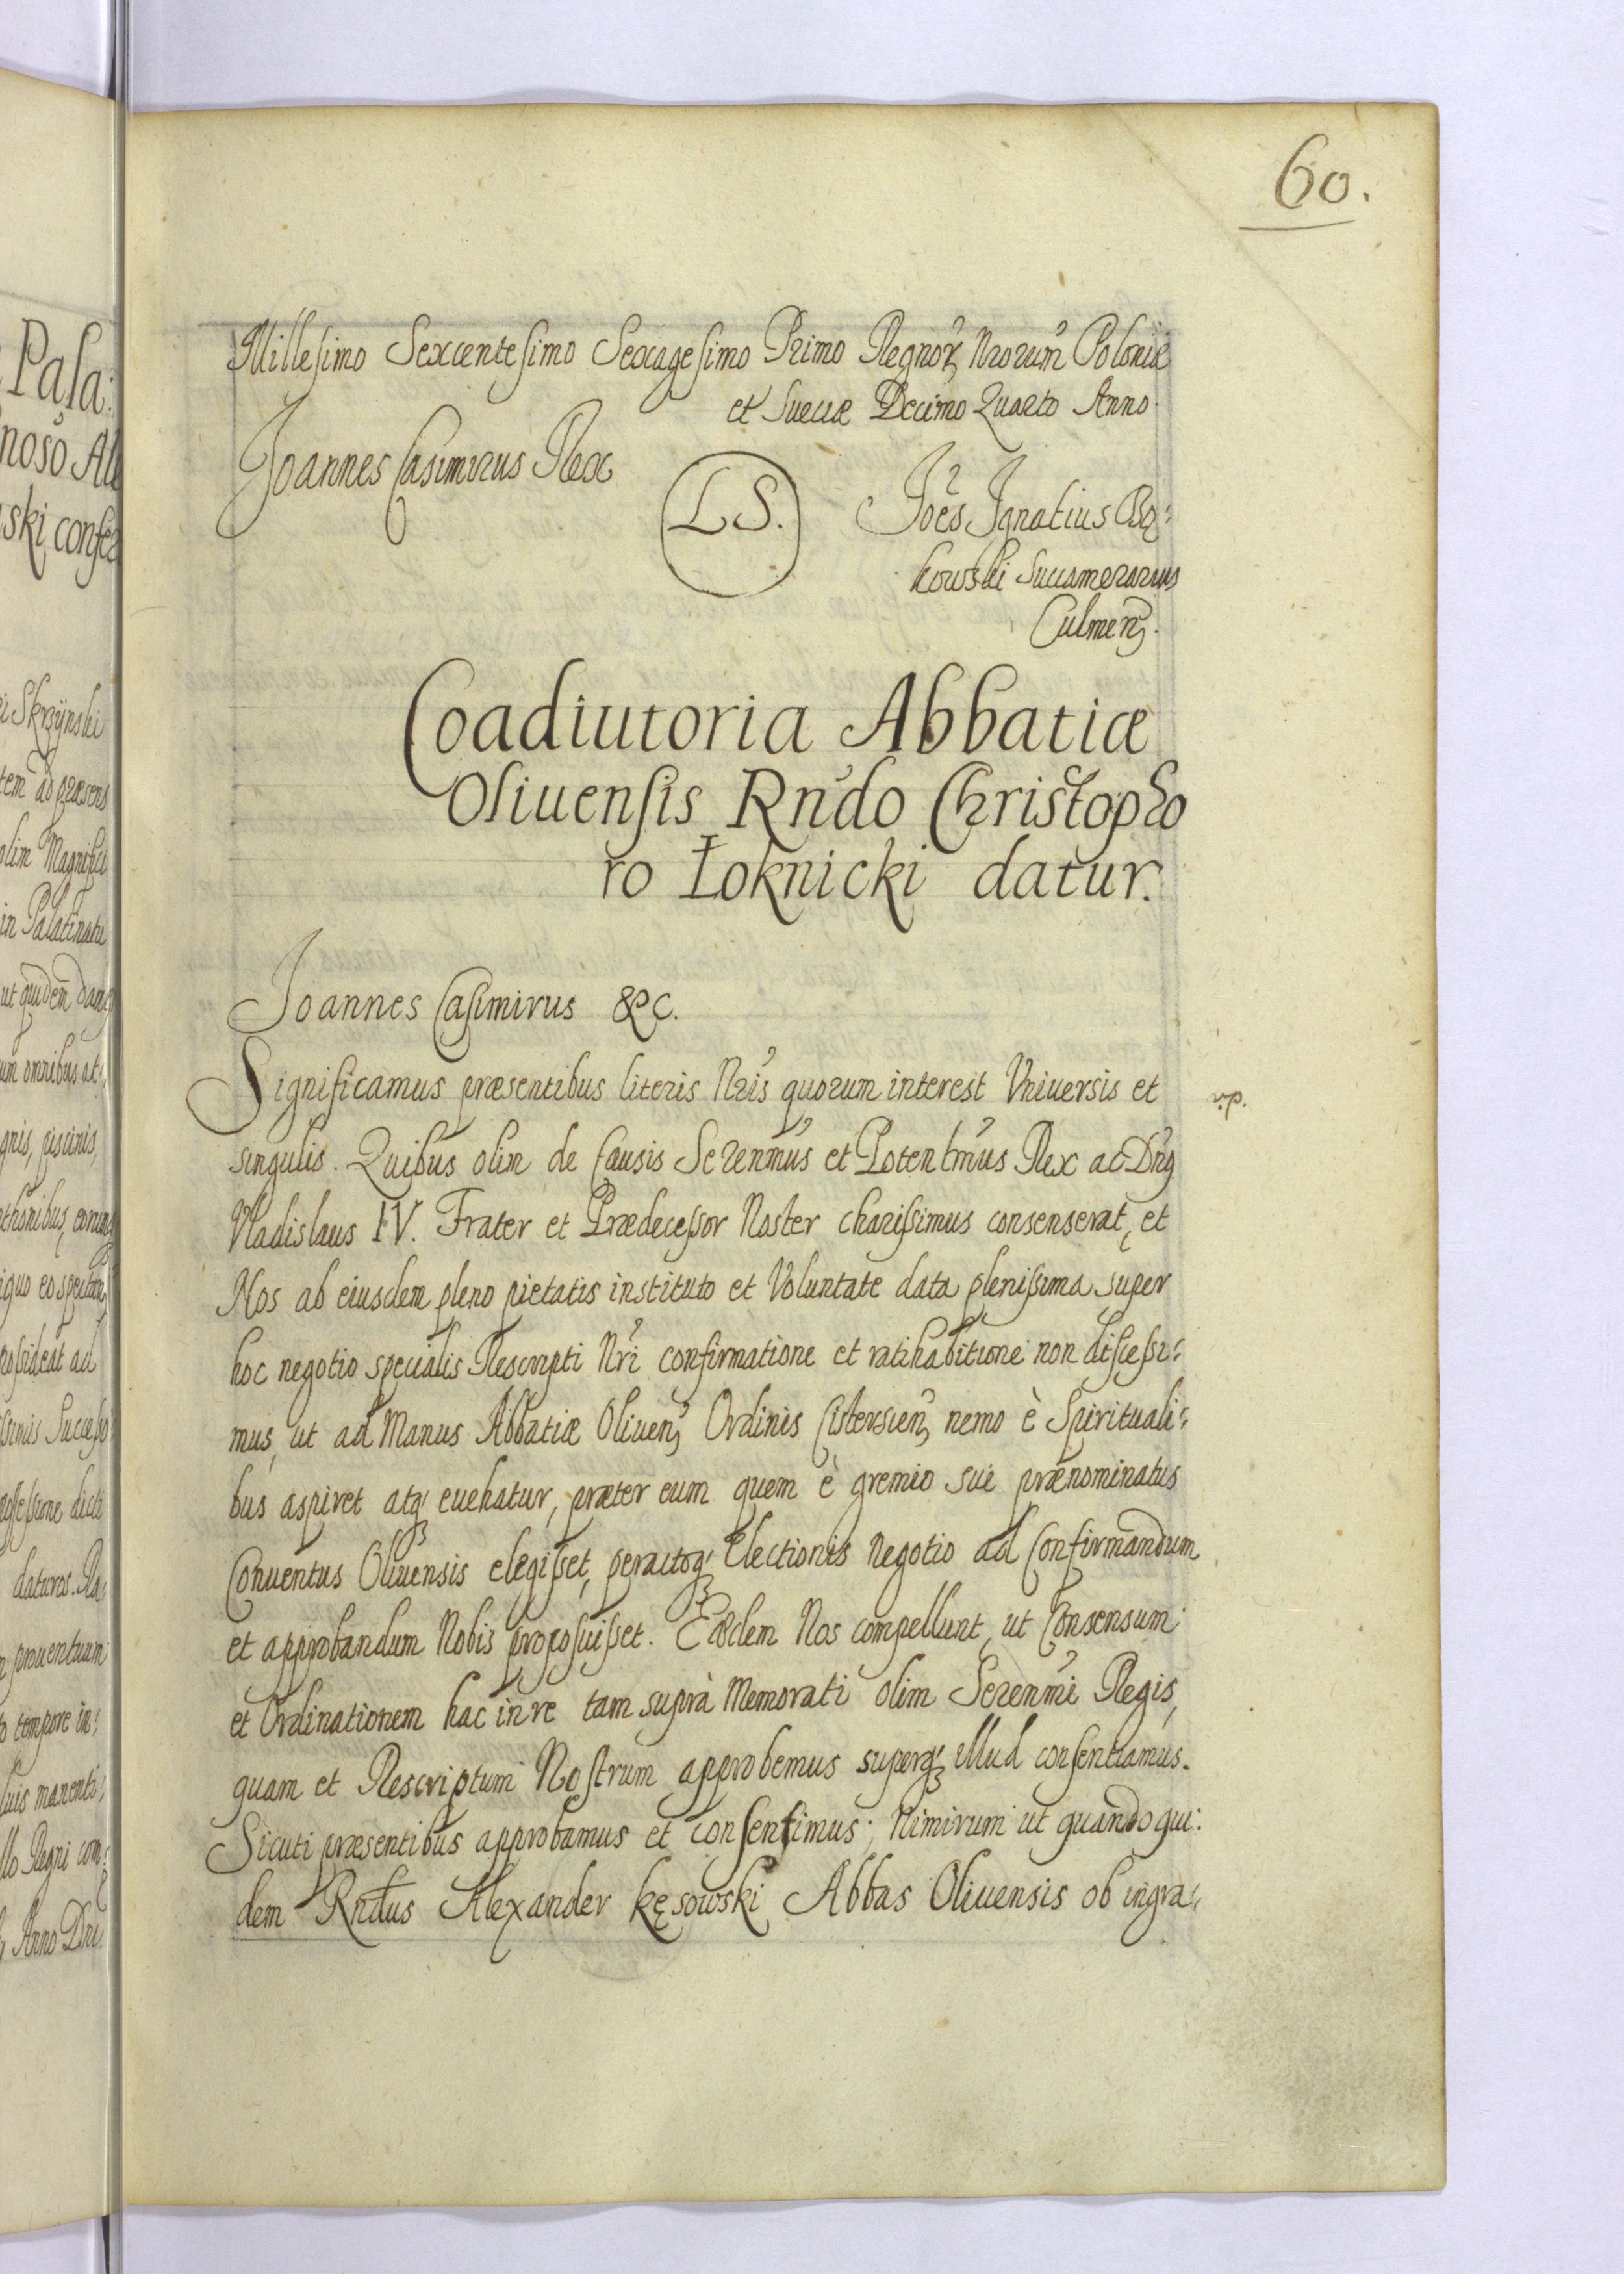 60.
Millesimo Sexcentesimo Sexagesimo Primo Regnor Nrorum Poloniæ
et Sueciæ Decimo Quarto Anno.
Joannes Casimirus Rex
L S.
Joes Ignatius Bą:
kowski Succamerarius
Culmen.
Coadiutoria Abbatiæ
Oliuensis Rndo Christopho
ro Łoknicki datur.
Joannes Casimirus &c.
Significamus præsentibus literis Nris quorum interest Vniuersis et
v.p.
singulis. Quibus olim de Causis Serenmus et Potentmus Rex ac Dng
Vladislaus IV. Frater et Prædecessor Noster charissimus consenserat, et
Nos ab eiusdem pleno pietatis instituto et Voluntate data plenissima super
hoc negotio specialis Rescripti Nri confirmatione et ratihabitione non discessi:
mus, ut ad Manus Abbatiæ Oliuen Ordinis Cistercien nemo è Spirituali:
bus aspiret atq euehatur, præter eum quem è gremio sui prænominatus
Conuentus Oliuensis elegisset, peractoq Electionis negotio ad Confirmandum
et approbandum Nobis proposuisset. Eædem Nos compellunt, ut Consensum
et Ordinationem hac in re tam suprà Memorati olim Serenmi Regis,
quam et Rescriptum Nostrum approbemus superq illud consentiamus.
Sicuti præsentibus approbamus et consentimus; Nimirum ut quandoqui:
dem Rndus Alexander Kęsowski Abbas Oliuensis ob ingra:
Pala:
noso Ale
ski confer
i Skrzÿnski
tem ad præsens
olim Magnifici
in Palatinatu
ut quidem
um omnibus at:
gnis, piscinis,
thonibus,
iquo eo
possideat ad
ssimis Successo
ossessione dicti
daturos. Ra:
prouentuum
o tempore in:
suis manenti:
llo Regni com:
Anno Dni